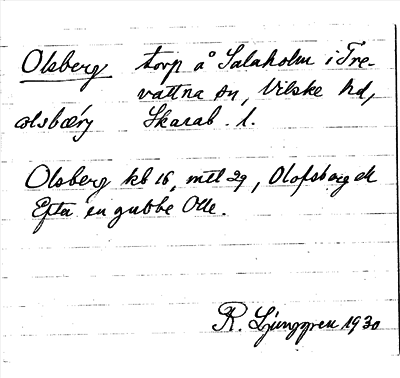 Olsberg torp å Salaholm i Tre-
vattna sn, Vilske hd,
olsbærj Skarab. l.
Olsberg kb 16, mtl 29, Olofsborg ek
Efter en gubbe Olle.
R. Ljunggren 1930